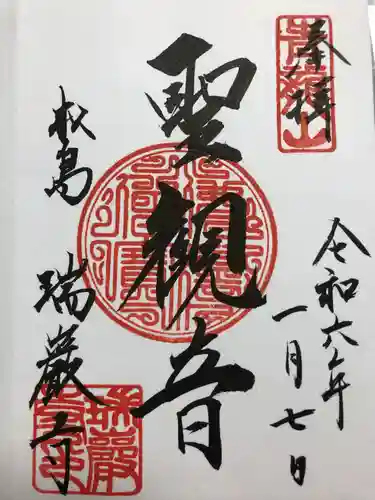 奉拝
令和六年
一月七日
聖観音
松島
瑞巌寺